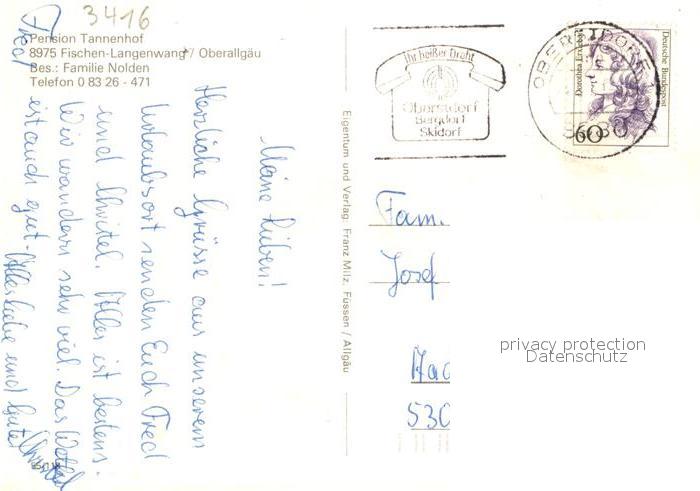 3416
Pension Tannenhof
8975 Fischen-Langenwang / Oberallgäu
Bes.: Familie Nolden
Telefon 0 83 26 - 471
Meine Lieben!
Herzliche Grüsse aus unserem
Urlaubsort senden Euch Fred
und Christel. Alles ist bestens.
Wir wandern sehr viel. Das Wetter
ist auch gut. Alles Liebe und Gute
Christel
Fred
Eigentum und Verlag: Franz Milz, Füssen / Allgäu
Ihr heißer Draht
Oberstdorf
Bergdorf
Skidorf
OBERSTDORF
8980
Deutsche Bundespost
60
Fam.
Josef
530
privacy protection
Datenschutz